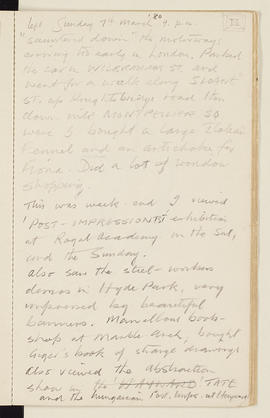 left Sunday 7th March '80 9. p.m.
"sauntered down" the motorways
arriving too early in London. Parked
the car in WILBRAHAM ST. and
went for a walk along SLOANE
ST. up Knightsbridge road then
down into MONTPELIER SQ
were I bought a large Italian
Fennel and an artichoke for
Fiona. Did a lot of window
shopping.
This was week-end I viewed
'POST-IMPRESSIONIST' exhibition
at Royal Academy on the Sat,
and the Sunday.
Also saw the steel-workers
demos in Hyde Park, very
impressed by beautiful
banners. Marvellous book-
shop at Marble Arch, bought
Giger's book of strange drawings
Also viewed the abstraction
show in the HAYWARD TATE
and the Hungarian at Hayward